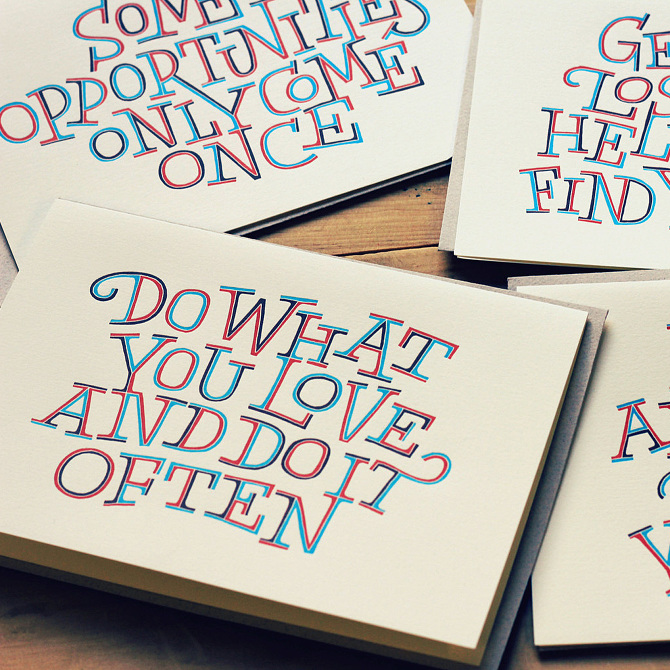 SOME
OPPORTUNITIES
ONLY COME
ONCE
FIND
DO WHAT
YOU LOVE,
AND DO IT
OFTEN